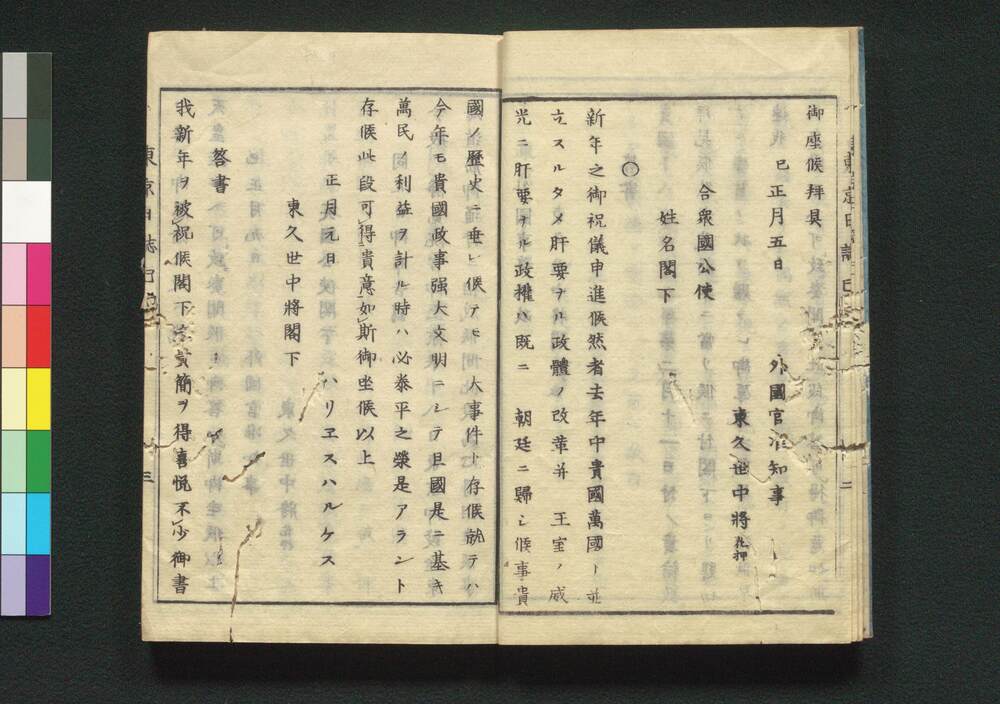 御座候拜具
巳正月五日
外國官准知事
東久世中將花押
合衆國公使
姓名閣下
〇
新年之御祝儀申進候然者去年中貴國萬國ト並
立スルタメ肝要ナル政體ノ改革并 王室ノ威
光ニ肝要ナル政權ハ既ニ 朝廷ニ歸シ候事貴
國ノ歷史ニ垂レ候テモ大事件ト存候就テハ
今年モ貴國政事强大文明ニシテ且國是ニ基キ
萬民ノ利益ヲ計ル時ハ必泰平之榮是アラント
存候此段可得貴意如斯御坐候以上
正月元日
ハリヱスハルケス
東久世中將閣下
答書
我新年ヲ被祝候閣下
貴簡ヲ得喜悅不少御書
東京日誌
三
二